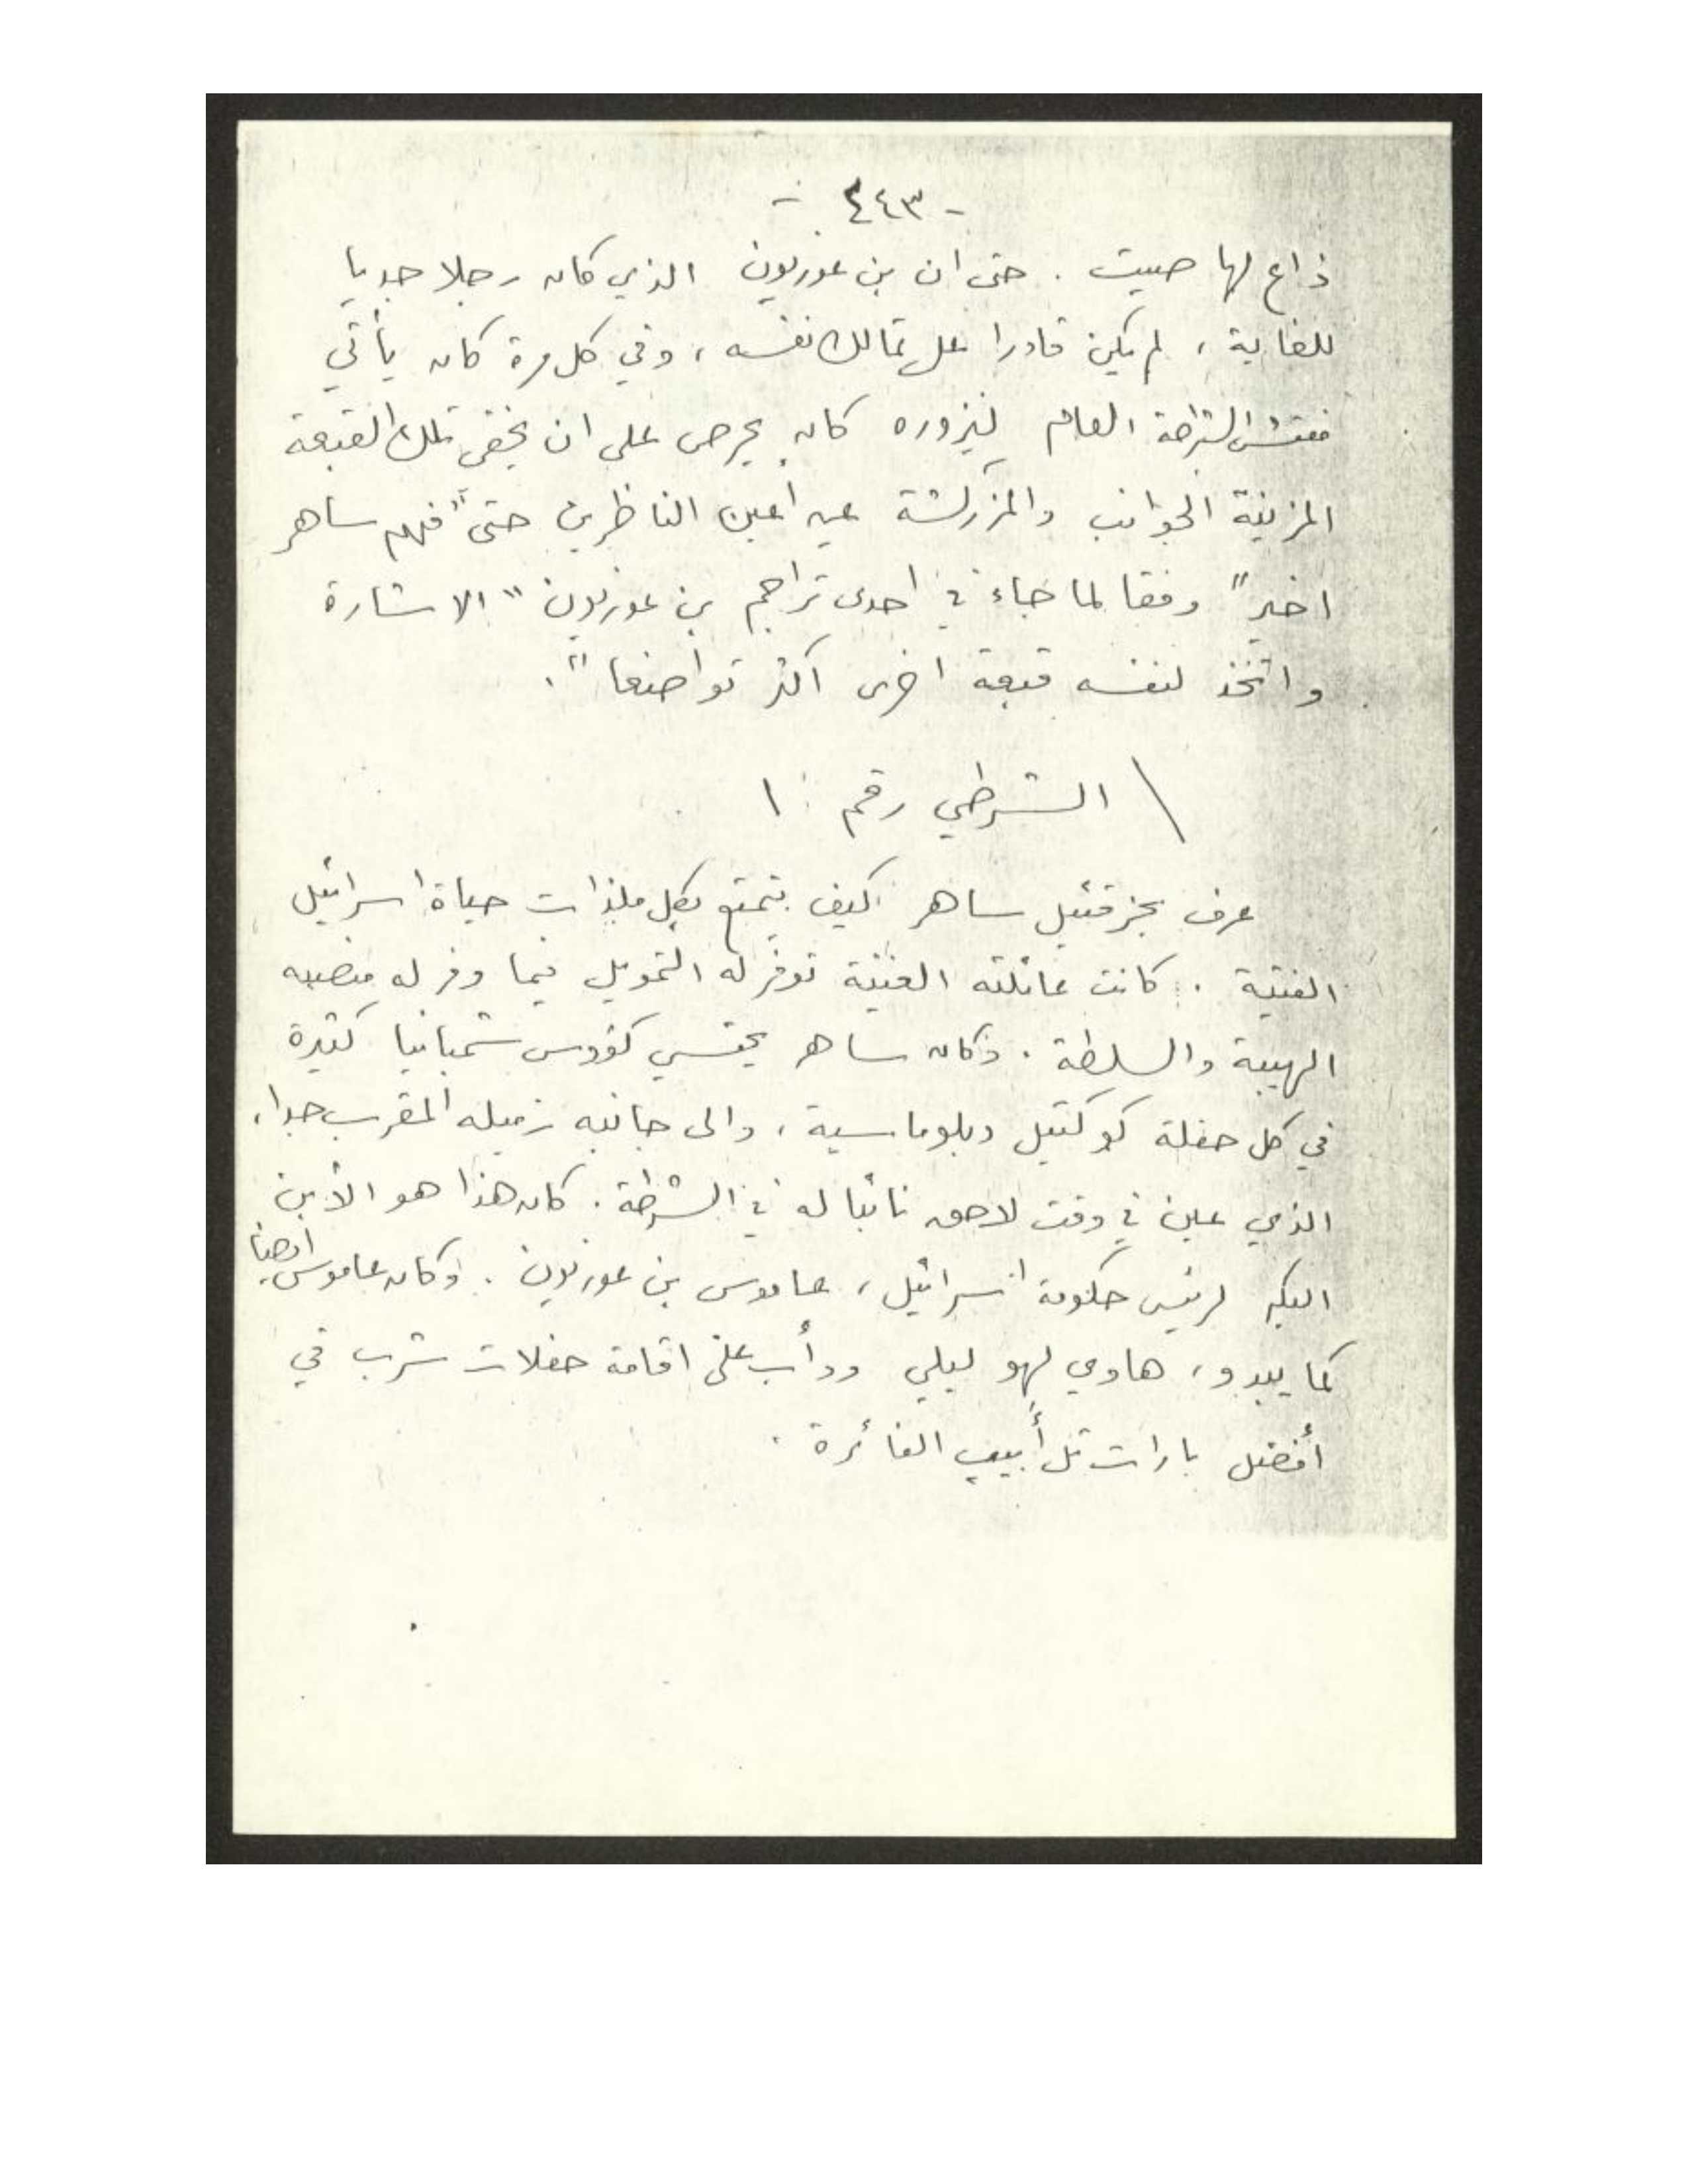 - ٤٤٣ -
ذاع لها صيت . حتى ان بن غوريون الذي كان رجلا جديا
للغاية ، لم يكن قادرا على تمالك نفسه ، وفي كل مرة كان يأتي
مفتش الشرطة العام ليزوره كان يحرص على ان يخفي تلك القبعة
المزينة الجوانب والمزركشة عن اعين الناظرين حتى "فهم ساهر
اخير" وفقا لما جاء في احدى تراجم بن غوريون " الاشارة
واتخذ لنفسه قبعة اخرى اكثر تواضعا ".
\ الشرطي رقم : ١
عرف يحزقئيل ساهر كيف يتمتع بكل ملذات حياة اسرائيل
الفتية . كانت عائلته الغنية توفر له التمويل فيما وفر له منصبه
الهيبة والسلطة . وكان ساهر يحتسي كؤوس شمبانيا كثيرة
في كل حفلة كوكتيل دبلوماسية ، والى جانبه زميله المقرب جدا ،
الذي عين في وقت لاحق نائبا له في الشرطة . كان هذا هو الأبن
البكر لرئيس حكومة اسرائيل ، عاموس بن غوريون . وكان عاموس ايضا
كما يبدو ، هاوي لهو ليلي ودأب على اقامة حفلات شرب في
أفضل بارات تل أبيب الفائرة .